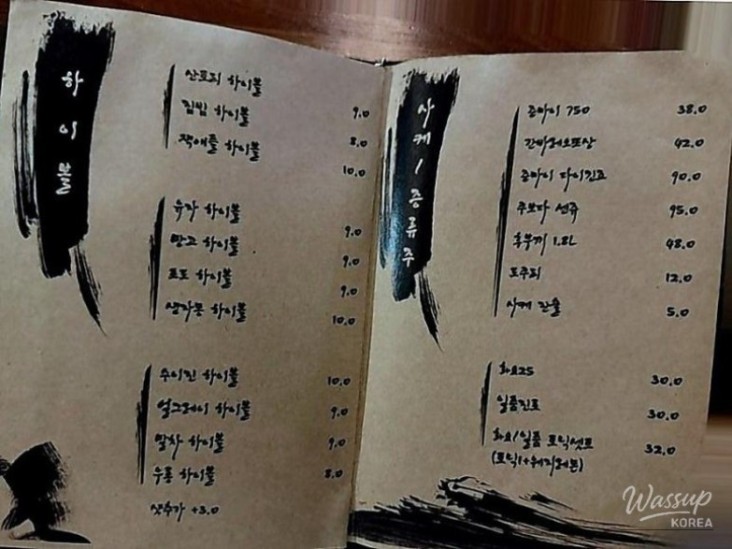 하이볼
산토리 하이볼 9.0
짐빔 하이볼 8.0
잭애플 하이볼 10.0
유자 하이볼 9.0
망고 하이볼 9.0
포도 하이볼 9.0
생자몽 하이볼 10.0
하이볼 10.0
얼그레이 하이볼 9.0
말차 하이볼 9.0
우롱 하이볼 8.0
샷추가 +3.0
사케/증류주
준마이 750 38.0
간바레오또상 42.0
준마이 다이긴죠 90.0
쿠보다 센쥬 95.0
1.8L 48.0
도쿠리 12.0
사케 잔술 5.0
화요25 30.0
일품진로 30.0
화요/일품 토닉셋트 32.0
(토닉1+웨지레몬)
Wassup
KOREA